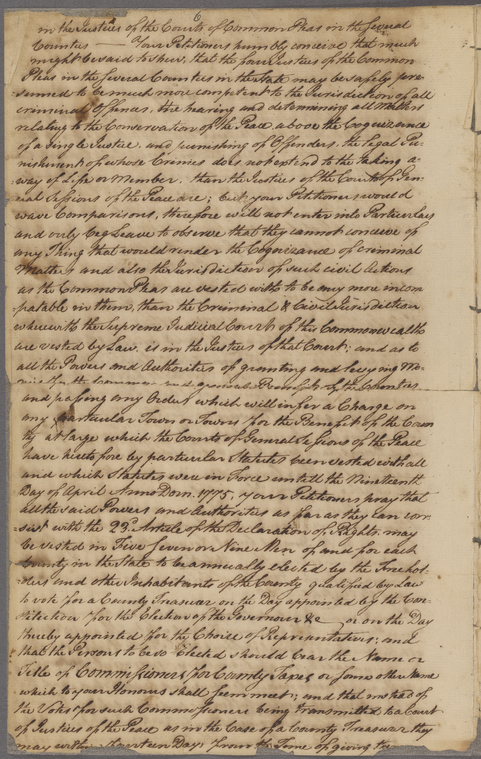 6
in the Justices of the Courts of Common Pleas in the several
Counties — Your Petitioners humbly conceive that much
might be said to shew, that the four Justices of the Common
Pleas in the several Counties in the State may be safely pre-
sumed to be much more competent to the Jurisdiction of all
criminal Offences, the hearing and determining all Matters
relating to the Conservation of the Peace above the Cognizance
of a single Justice, and punishing of Offenders, the legal Pu-
nishment of whose Crimes does not extend to the taking a-
way of Life or Member, than the Justices of the Courts of Gen-
eral Sessions of the Peace are; but your Petitioners would
wave Comparisons, therefore will not enter into Particulars
and only beg Leave to observe that they cannot conceive of
any Thing that would render the Cognizance of criminal
Matters and also the Jurisdiction of such civil Actions
as the Common Pleas are vested with to be any more incom-
patable in them, than the Criminal & Civil Jurisdiction
wherewith the Supreme Judicial Court of this Commonwealth
are vested by Law, is in the Justices of that Court; and as to
all the Powers and Authorities of granting and levying Mo-
nies for the and general of the Counties
and passing any Orders which will infer a Charge on
any particular Town or Towns for the Benefit of the Coun-
ty at large which the Courts of General Sessions of the Peace
have heretofore by particular Statutes been vested with all
and which Statutes were in Force untill the Nineteenth
Day of April Anno Dom. 1775, your Petitioners pray that
all the said Powers and Authorities as far as they can con-
sist with the 23d Article of the Declaration of Rights, may
be vested in Five Seven or Nine Men of and for each
County in the State to be annually elected by the Freehol-
ders and other Inhabitants of the County qualified by Law
to vote for a County Treasurer on the Day appointed by the Con-
stitution for the Election of the Governour &c or on the Day
thereby appointed for the Choice of Representatives; and
that the Persons to be so Elected should bear the Name or
Title of Commissioners for County Taxes or some other Name
which to your Honours shall seem meet; and that instead of
the Votes for such Commissioners being transmitted to a Court
of Justices of the Peace as in the Case of a County Treasurer they
may within fourteen Days from the Time of giving the